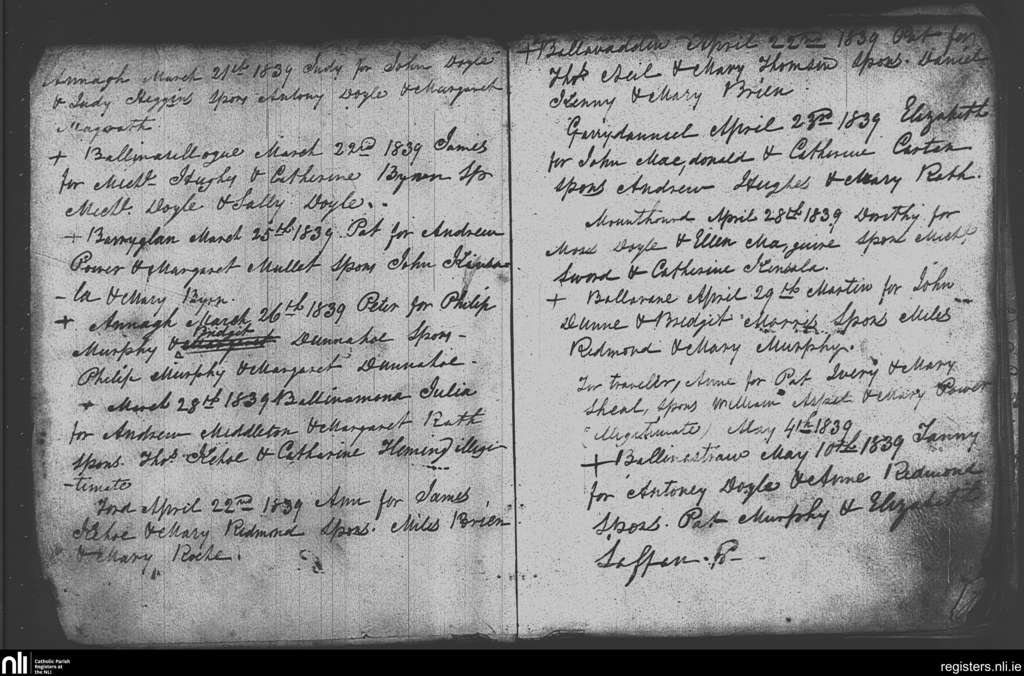 Annagh March 21st 1839 Judy for John Doyle
& Judy Higgins Spons Antony Doyle & Margaret
Magrath
+ Ballinatillogue March 22nd 1839 James
for Michl. Hughs & Catherine Byrnn Sp
Michl. Doyle & Sally Doyle..
+ Barryglan March 25th 1839 Pat for Andrew
Power & Margaret Mullet Spons John Kinsa
- la & Mary Byrn.
+ Annagh March 26th 1839 Peter for Philip
Bridgit
Murphy & Margaret Dunnahoe Spons -
Philip Murphy & Margaret Dunnahoe -
+ March 28th 1839 Ballinamona Julia
for Andrew Middleton & Margaret Rath
Spons. Thos Kehoe & Catharine Fleming illigi
- timate
Ford April 22nd 1839 Ann for James
Kehoe & Mary Redmond Spons. Miles Brien
& Mary Roche.
+ Ballavaddin April 22nd 1839 Pat for
Thos Neil & Mary Thomson Spons. Daniel
Kenny & Mary Brien
Garrydanniel April 23rd 1839 Elizabeth
for John Macdonald & Catherine Carton
Spons Andrew Hughes & Mary Rath.
Mounthourd April 28th 1839 Dorithy for
Moses Doyle & Ellen Maguire Spons Michl
Sword & Catherine Kinsala.
+ Ballavane April 29th Martin for John
Dunne & Bridgit Morris Spons Miles
Redmond & Mary Murphy.
For traveller, Anne for Pat Ivery & Mary
Sheal, Spons William & Mary Power
(Illigitimate) May 4th 1839
+ Ballinastraw May 10th 1839 Fanny
for Antoney Doyle & Anne Redmond
Spons. Pat Murphy & Elizabeth
Laffan.
nli
Catholic Parish
Registers at
the NLI
registers.nli.ie